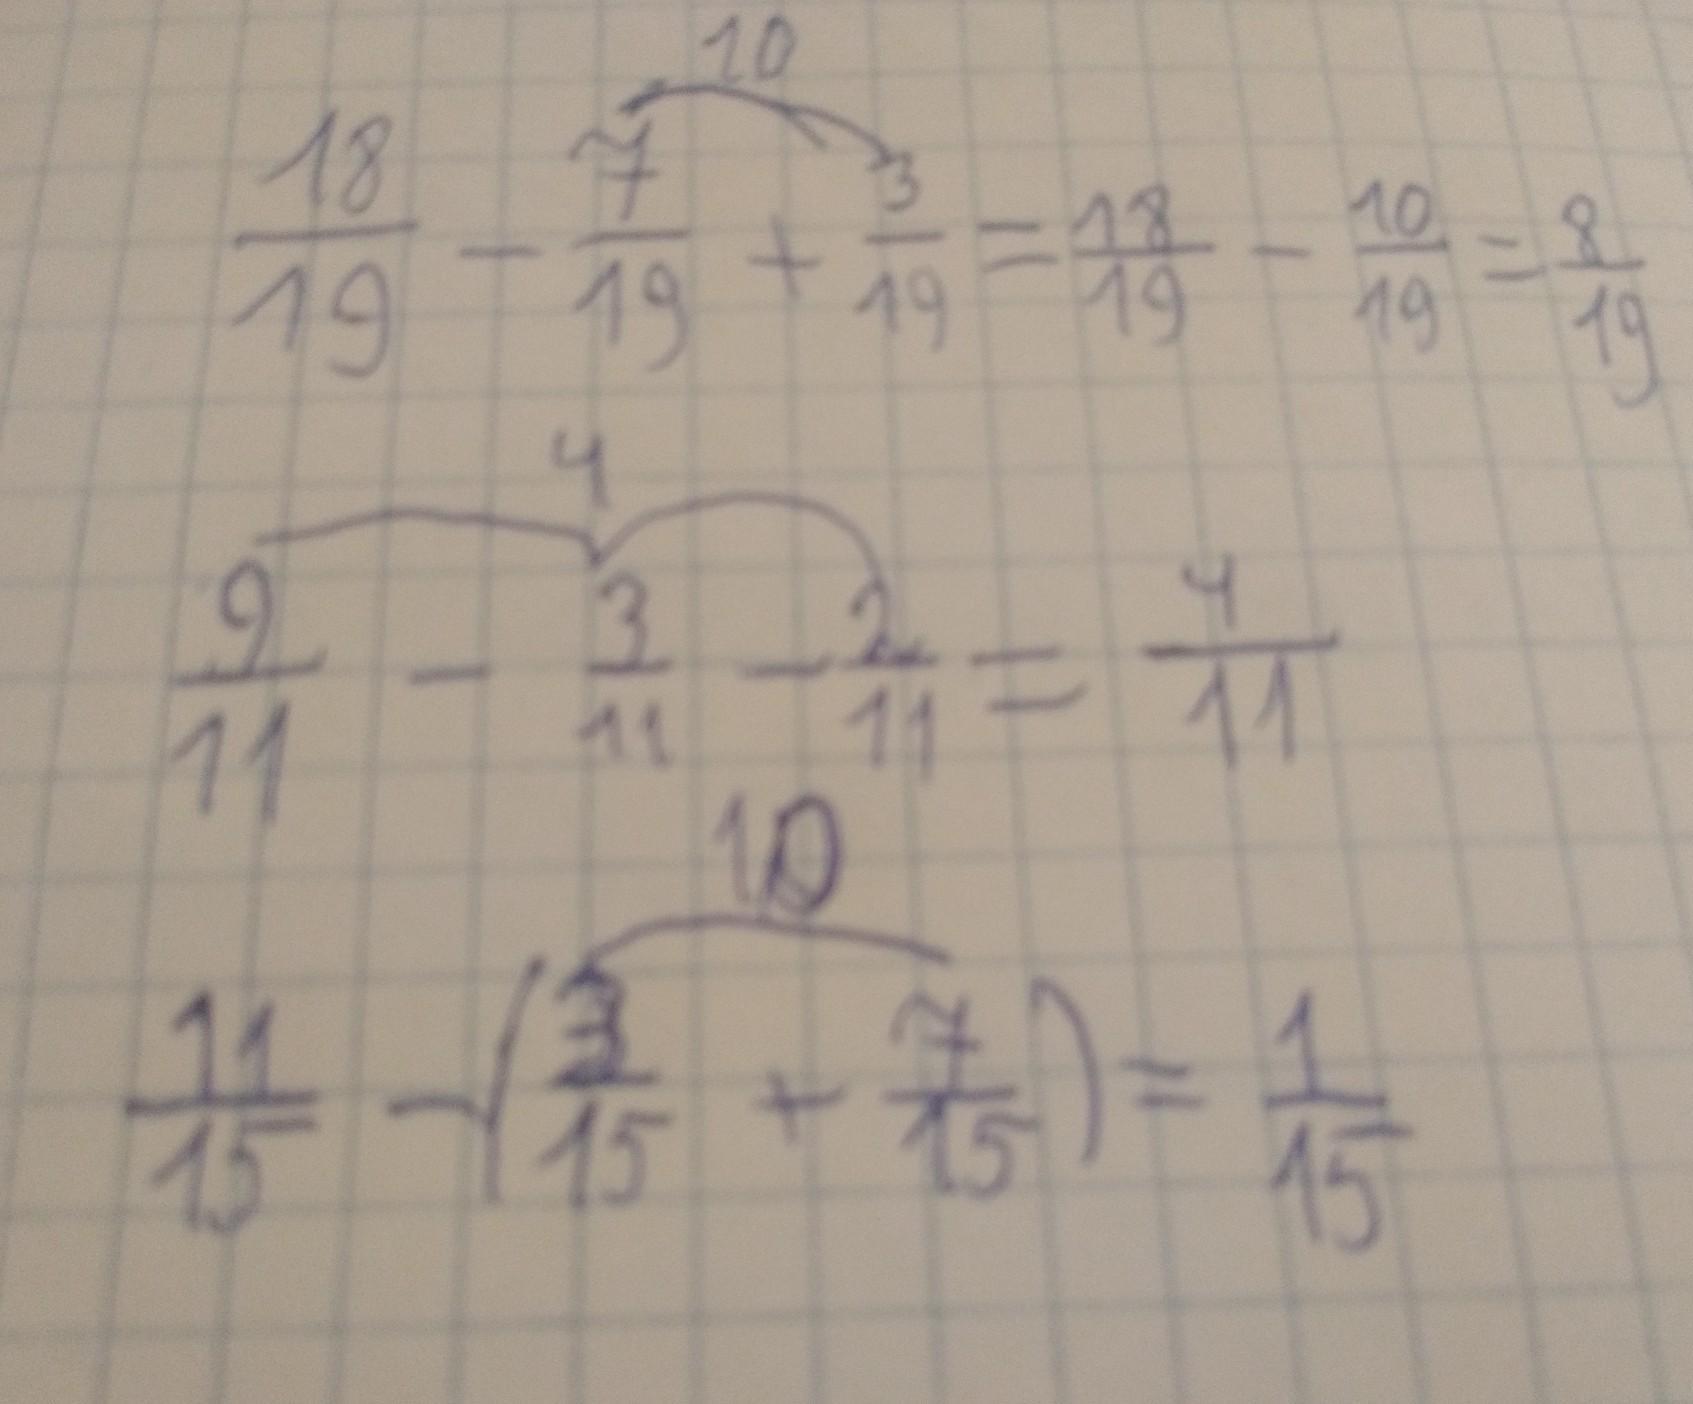 10
18/19 - 7/19 + 3/19 = 18/19 - 10/19 = 8/19
4
9/11 - 3/11 - 2/11 = 4/11
10
11/15 - (3/15 + 7/15) = 1/15